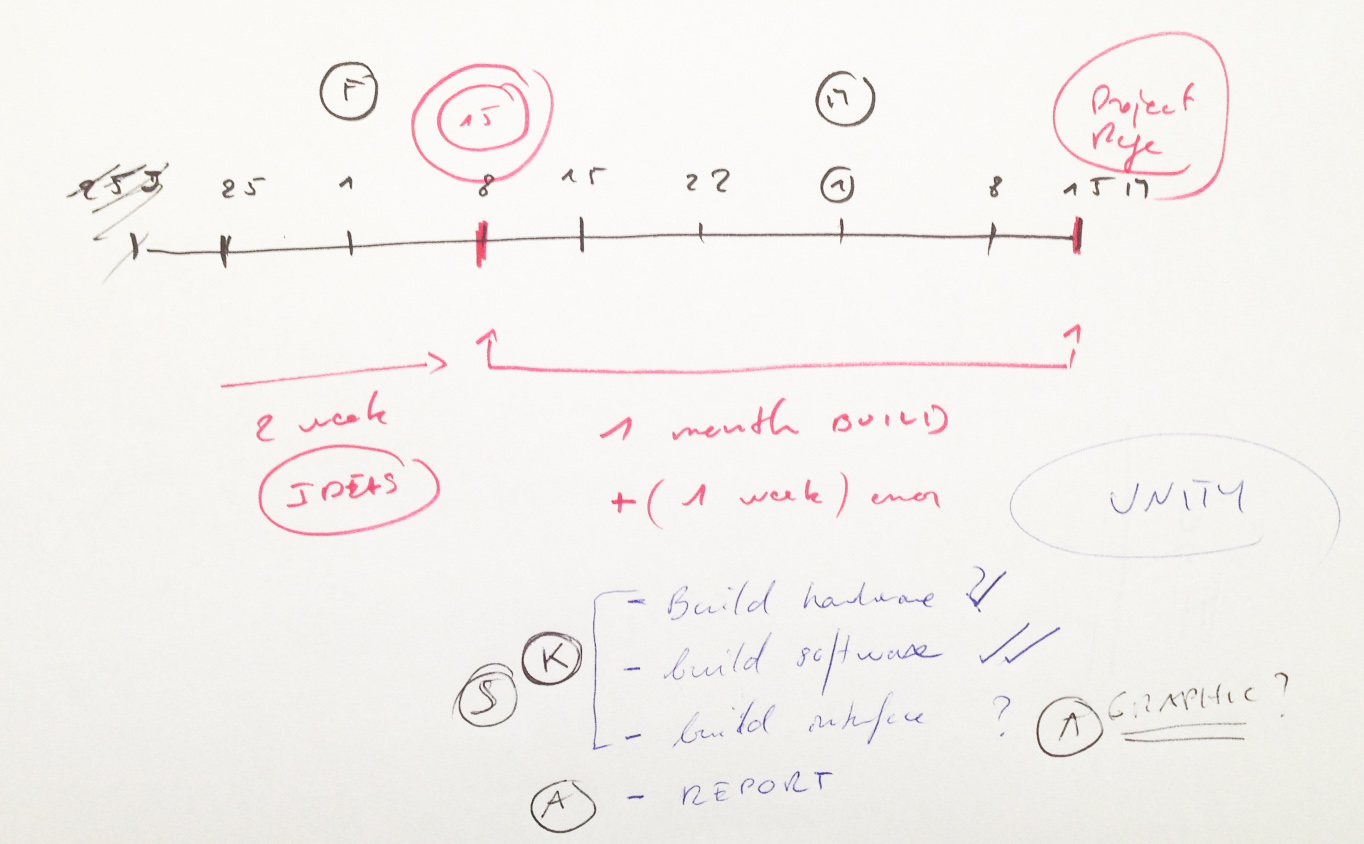 F
15
M
Project
25 1 8 15 22 1 8 15 M
2 week
IDEAS
1 month BUILD
+ ( 1 week ) error
UNITY
- Build hardware ?✓
K
- build software ✓✓
S
- build interface ?
A GRAPHIC ?
A - REPORT